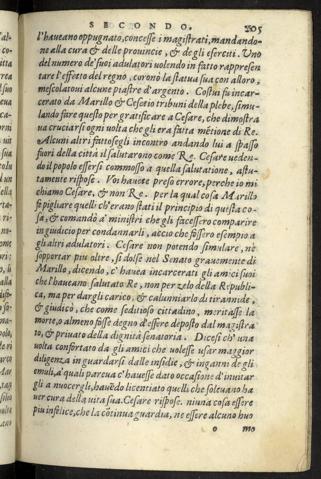 SECONDO. 205
l'haueano oppugnato, concesse i magistrati, mandando-
ne alla cura & delle prouincie, & de gli eserciti. Vno
del numero de' suoi adulatori volendo in fatto rappresen
tare l'effetto del regno, coronò la statua sua con alloro,
mescolatoui alcune piastre d'argento. Costui fu incar-
cerato da Marillo & Cesetio tribuni della plebe, simu-
lando fare questo per gratificare a Cesare, che dimostra
ua cruciarsi ogni volta che gli era fatta mẽtione di Re.
Alcuni altri fattosegli incontro andando lui a spasso
fuori della città il salutarono come Re. Cesare ueden-
do il popolo essersi commosso a quella salutatione, astu-
tamente rispose. Voi hauete preso errore, perche io mi
chiamo Cesare, & non Re. per la qual cosa Marillo
fe pigliare quelli ch'erano stati il principio di questa co-
sa, & comandò a' ministri che gli facessero comparire
in giudicio per condannarli, accio che fossero esempio a
gli altri adulatori. Cesare non potendo simulare, nè
sopportar piu oltre, si dolse nel Senato grauemente di
Marillo, dicendo, c'hauea incarcerati gli amici suoi
che l'haueano salutato Re, non per zelo della Republi-
ca, ma per dargli carico, & calunniarlo di tirannide,
& giudicò, che come seditioso cittadino, meritasse la
morte, o almeno fusse degno d'essere deposto dal magistra
to, & priuato della dignità senatoria. Dicesi ch'una
volta confortato da gli amici che volesse usar maggior
diligenza in guardarsi dalle insidie, & inganni de gli
emuli, a' quali pareua c'hauesse dato occasione d'inuitar
gli a nuocergli, hauẽdo licentiato quelli che soleuano ha
uer cura della vita sua. Cesare rispose. niuna cosa essere
piu infelice, che la cõtinua guardia, ne essere alcuno huo
o mo